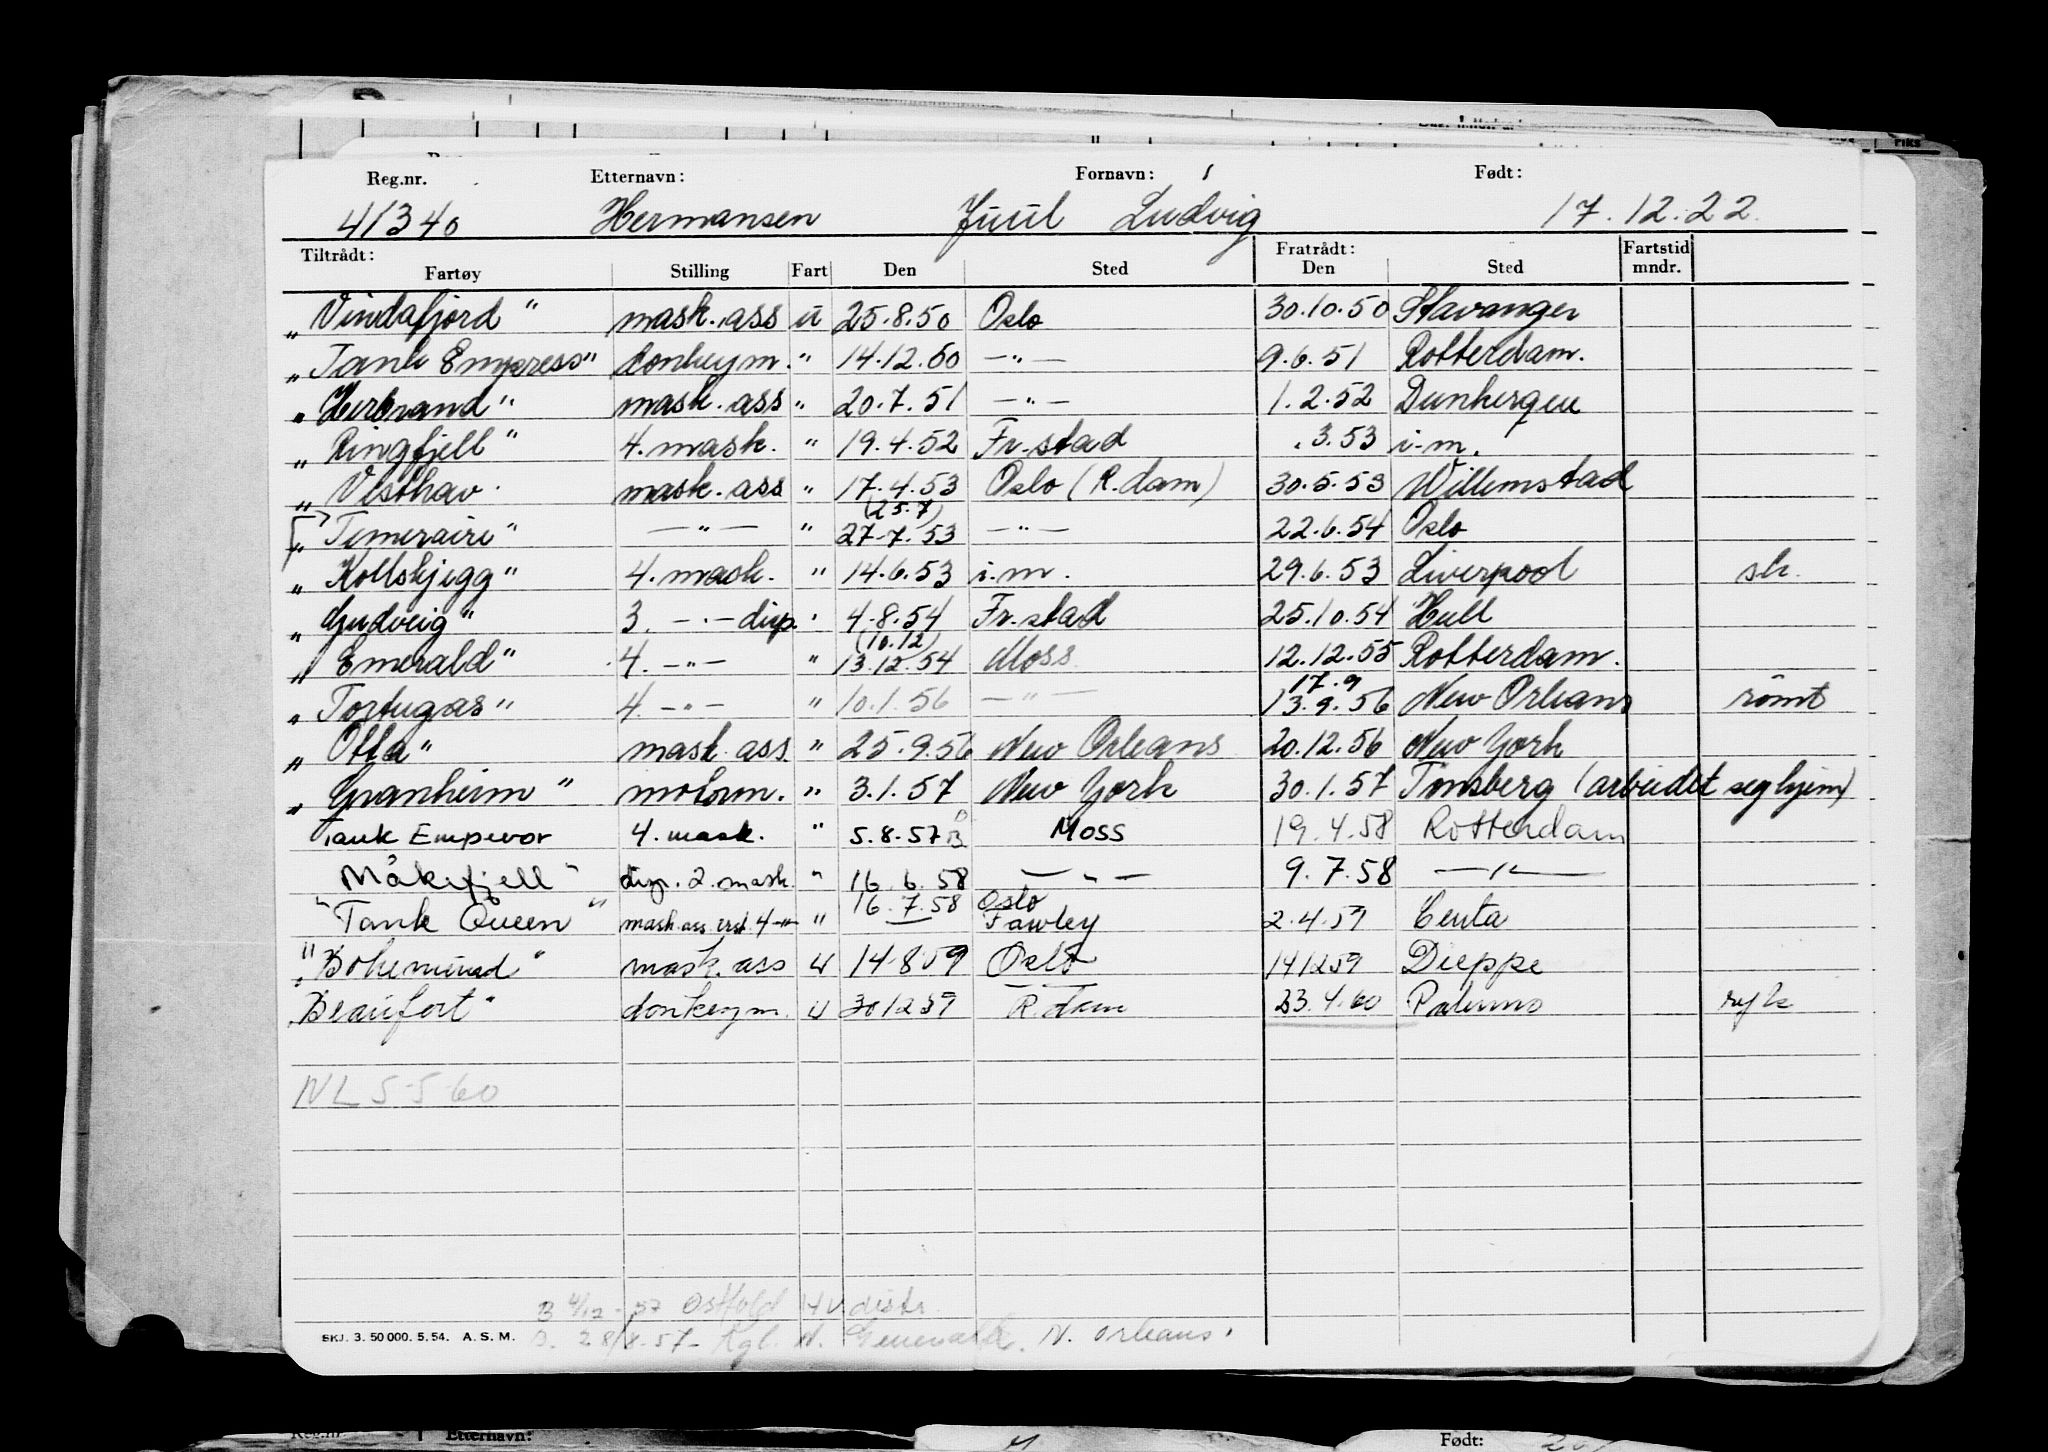 Reg.nr. Etternavn: Fornavn: Født:
41340 Hermansen Juul Ludvig 17.12.22
Tiltrådt: Fratrådt: Fartstid
Fartøy Stilling Fart Den Sted Den Sted mndr.
„Vindafjord" mask.ass u 25.8.50 Oslo 30.10.50 Stavanger
„Tank Empress" donkeym. " 14.12.50 —"— 9.6.51 Rotterdam.
„Herbrand" mask.ass " 20.7.51 —"— 1.2.52 Dunkerque
„Ringfjell" 4.mask. " 19.4.52 Fr.stad .3.53 i.m.
„Vesthav. mask.ass " 17.4.53 Oslo (R.dam) 30.5.53 Willemstad
(25.7)
„Temeraire" —"— " 27.7.53 —"— 22.6.54 Oslo
„Kollskjegg" 4.mask. " 14.6.53 i.m. 29.6.53 Liverpool sk.
„Gudveig" 3. —"— disp. " 4.8.54 Fr.stad 25.10.54 Hull
(10.12)
„Emerald" 4. —"— " 13.12.54 Moss 12.12.55 Rotterdam.
17.9
„Tortugas" 4. —"— " 10.1.56 —"— 13.9.56 New Orleans rømt
„Otta" mask.ass. " 25.9.56 New Orleans 20.12.56 New York
„Granheim" motorm. " 3.1.57 New York 30.1.57 Tønsberg (arbeidet seg hjem)
Tank Emperor 4. mask. " 5.8.57 B Moss 19.4.58 Rotterdam
Måkefjell" disp. 2. mask. " 16.6.58 —"— 9.7.58 —"—
Oslo
"Tank Queen" mask.ass erst. 4 —"— " 16.7.58 Fawley 2.4.59 Ceuta
"Bohemund" mask.ass u 14859 Oslo 141259 Dieppe
Beaufort" donkeym. u 301259 R.dam 23.4.60 Palermo syk
NL 5-5-60
B 4/12-57 Østfold HV distr.
SKJ. 3. 50 000. 5. 54. A. S. M. 28/8-57- Kgl. N. N. Orleans.